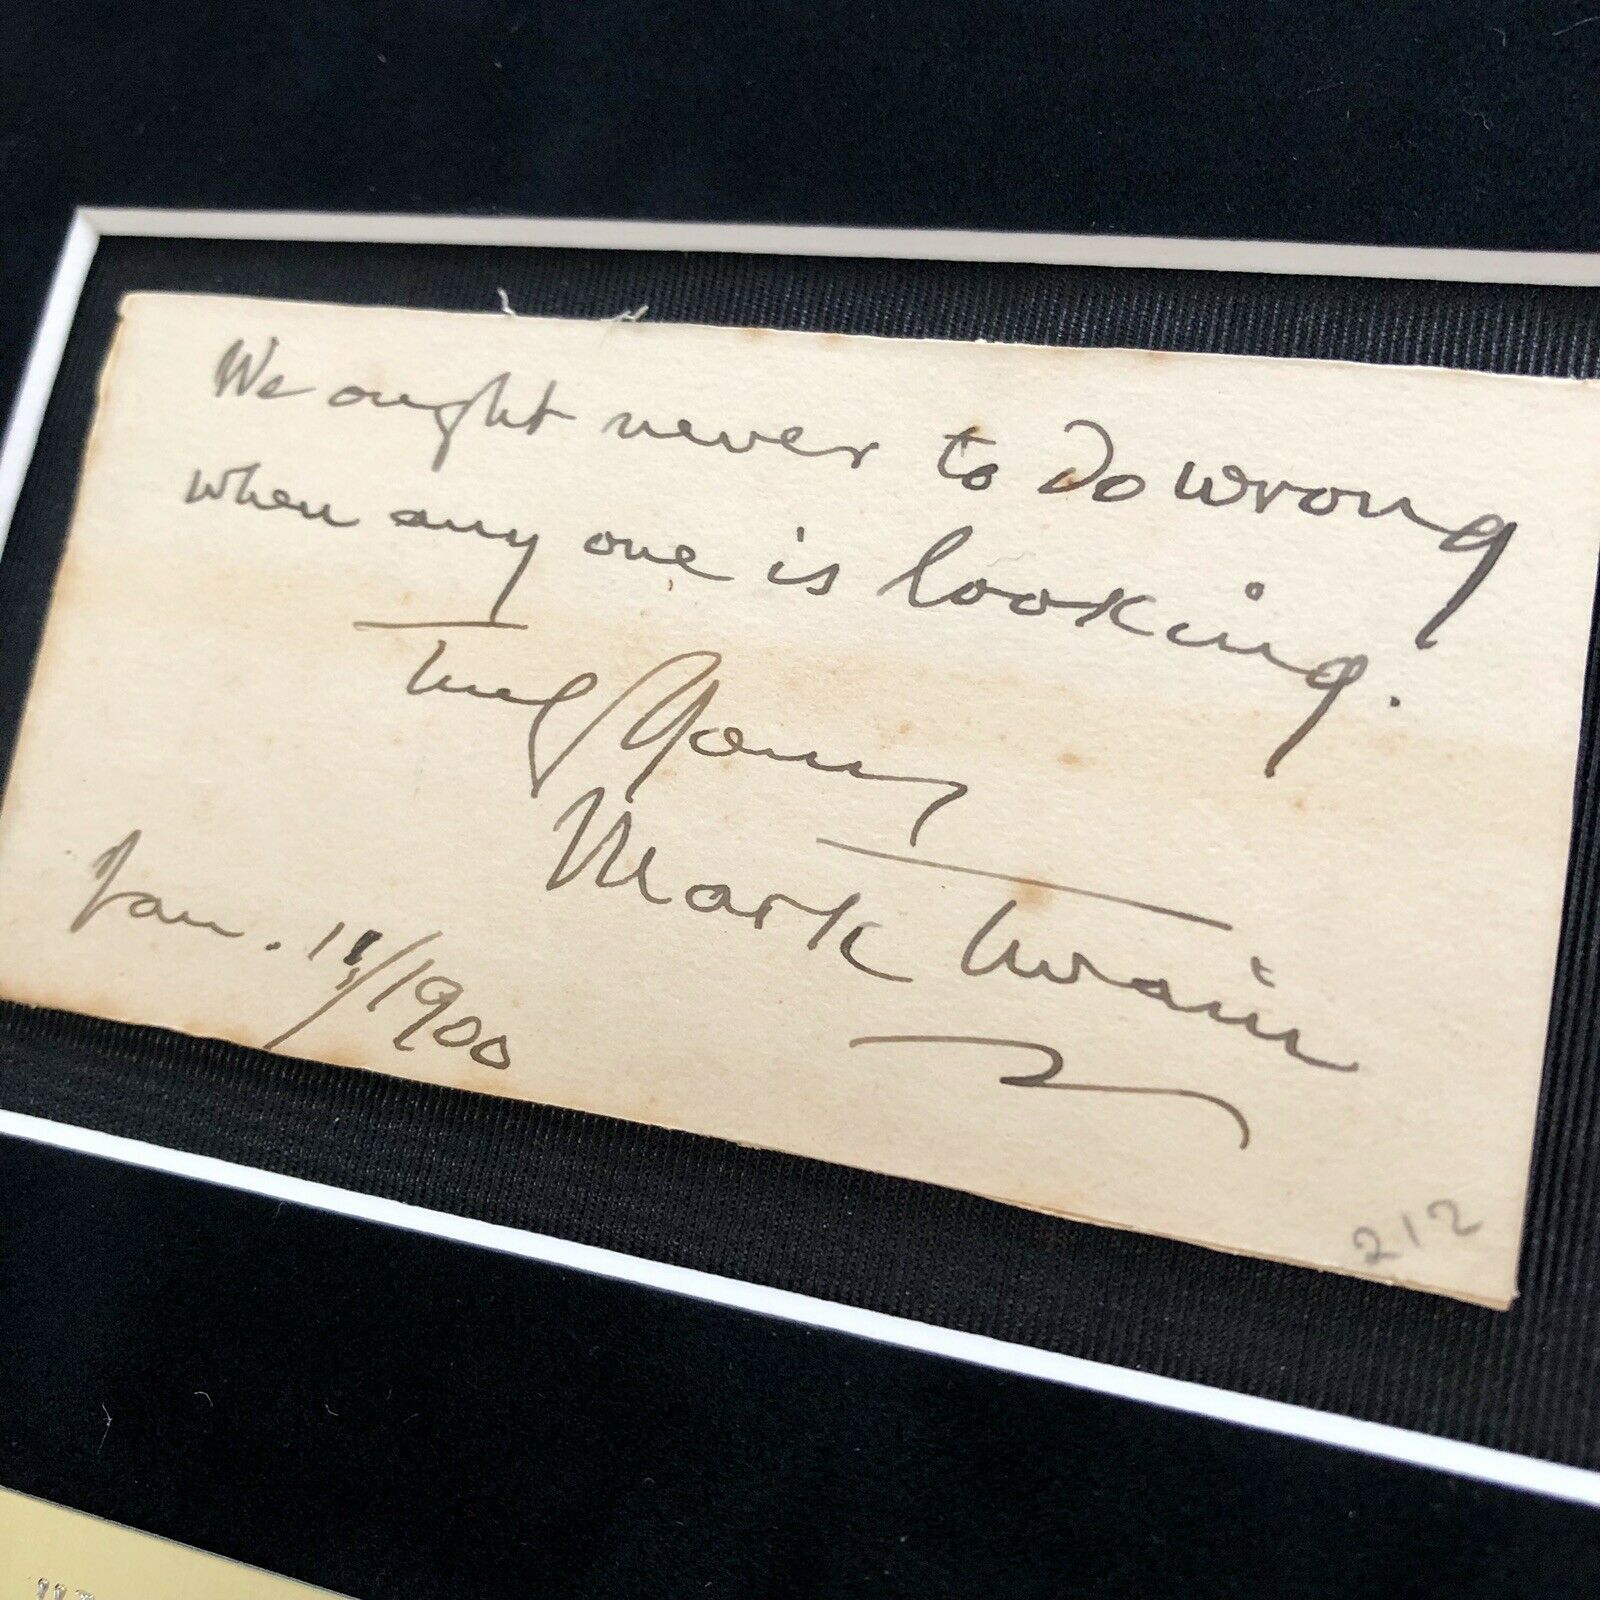 We ought never to do wrong
when any one is looking.
Truly Yours
Mark Twain
Jan. 11/1900
212